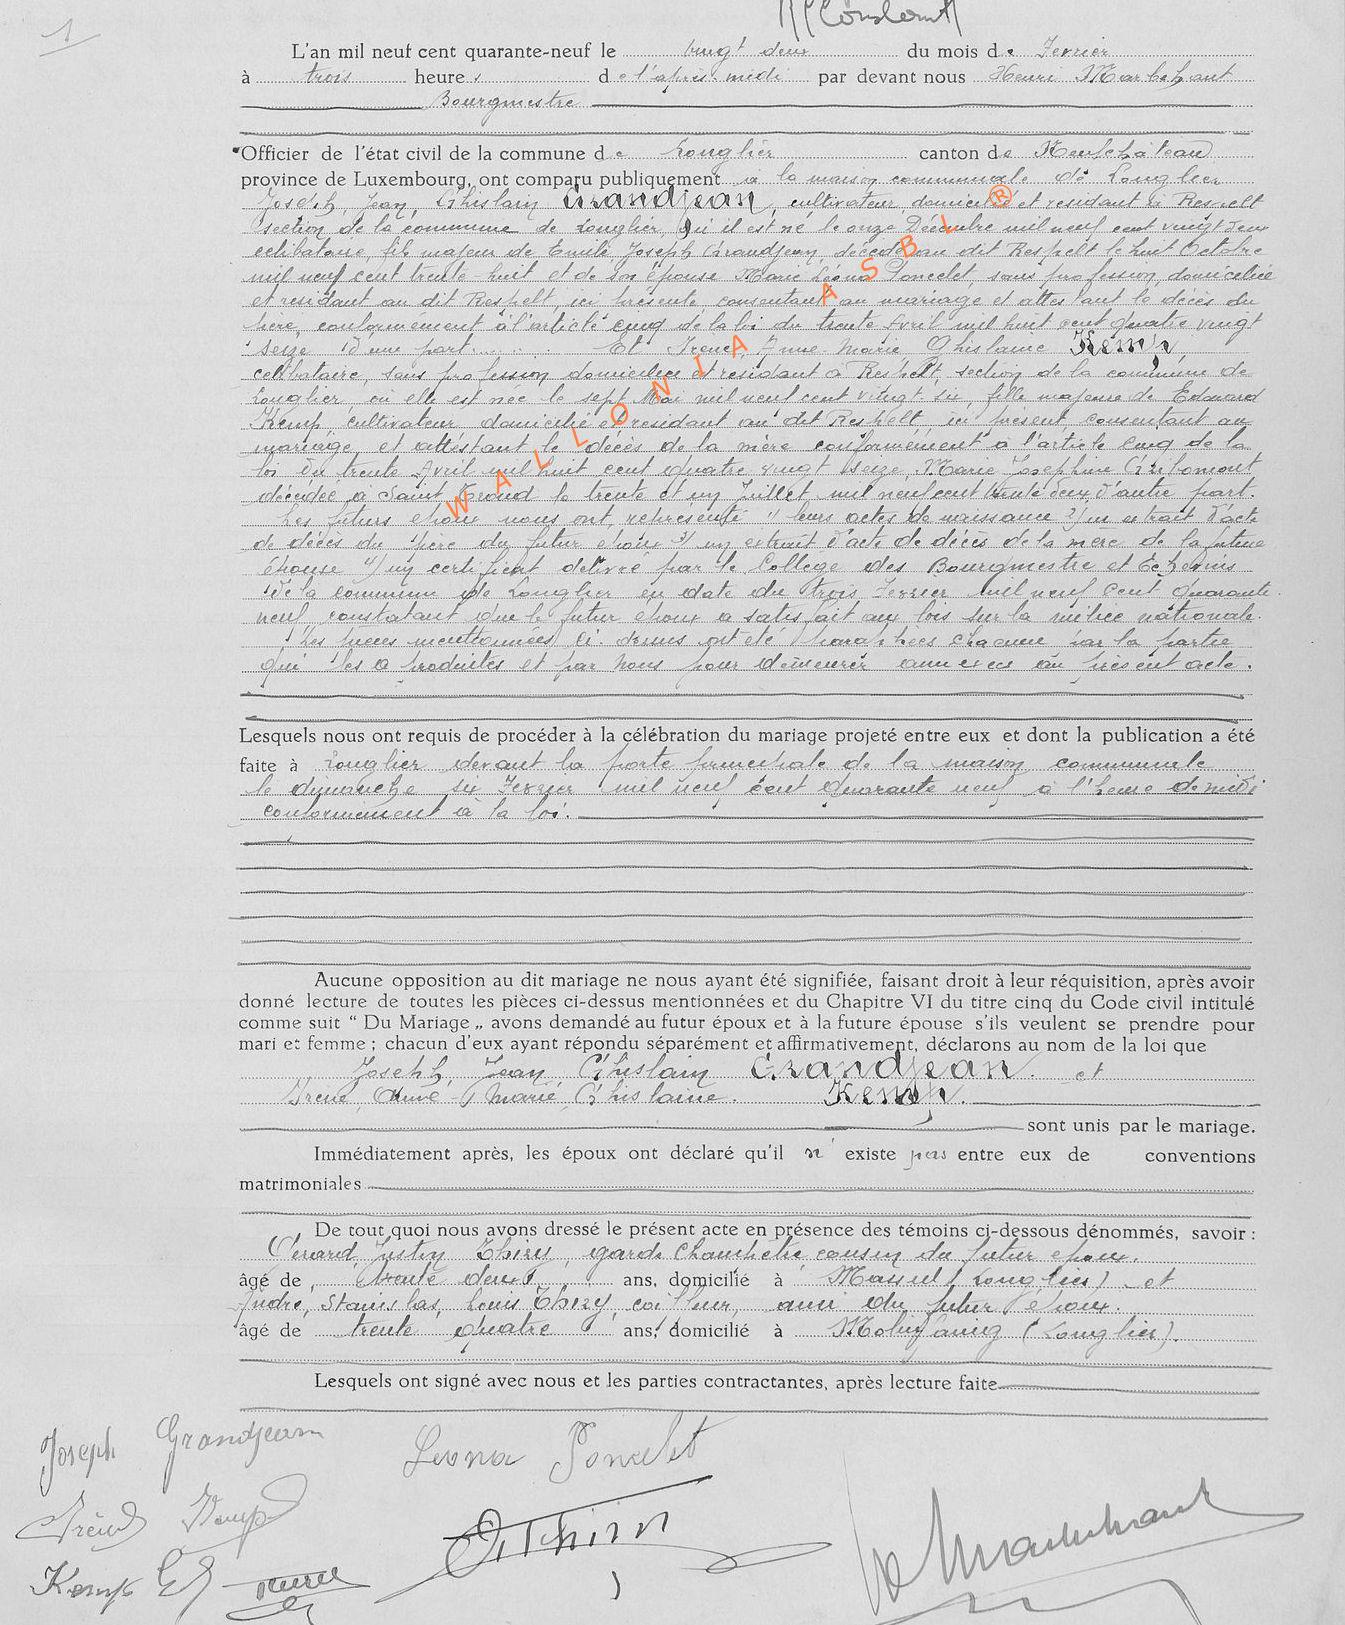 1
L'an mil neuf cent quarante-neuf le vingt deux du mois de Fevrier
à trois heures de l'après-midi par devant nous Henri
Bourgmestre
Officier de l'état civil de la commune de Longlier canton de Neufchâteau
province de Luxembourg, ont comparu publiquement à la maison communale de Longlier
Joseph, Jean, Ghislain Grandjean, cultivateur, domicilié et residant à Respelt
section de la commune de Longlier, où il est né le onze Décembre mil neuf cent vingt deux
celibataire, fils majeur de Emile Joseph Grandjean, décédé au dit Respelt le huit Octobre
mil neuf cent trente-huit et de son épouse Marie Léona Poncelet, sans profession, domiciliée
et residant au dit Respelt, ici présente, consentant au mariage et attestant le décès du
père, conformément à l'article cinq de la loi du trente Avril mil huit cent quatre vingt
seize d'une part. Et Irene, Anne-Marie, Ghislaine Kemp,
celibataire, sans profession domiciliée et residant à Respelt, section de la commune de
Longlier, où elle est née le sept Mai mil neuf cent vingt six, fille majeure de Edouard
Kemp, cultivateur domicilié et residant au dit Respelt, ici présent, consentant au
mariage, et attestant le décès de la mère conformément à l'article cinq de la
loi du trente Avril mil huit cent quatre vingt seize, Marie Josephine Gribomont
décédée à Saint Trond le trente et un Juillet mil neuf cent trente deux d'autre part.
Les futurs époux nous ont représenté 1) leurs actes de naissance 2) un extrait d'acte
de décès du père du futur époux 3) un extrait d'acte de décès de la mère de la future
épouse 4) un certificat délivré par le Collège des Bourgmestre et Echevins
de la commune de Longlier en date du trois Fevrier mil neuf cent quarante
neuf constatant que le futur époux a satisfait aux lois sur la milice nationale.
Les pièces mentionnées ci-dessus ont été paraphées chacune par la partie
qui les a produites et par nous pour demeurer annexées au présent acte.
Lesquels nous ont requis de procéder à la célébration du mariage projeté entre eux et dont la publication a été
faite à Longlier devant la porte principale de la maison communale
le dimanche six Fevrier mil neuf cent quarante neuf à l'heure de midi
conformément à la loi.
Aucune opposition au dit mariage ne nous ayant été signifiée, faisant droit à leur réquisition, après avoir
donné lecture de toutes les pièces ci-dessus mentionnées et du Chapitre VI du titre cinq du Code civil intitulé
comme suit “ Du Mariage „ avons demandé au futur époux et à la future épouse s'ils veulent se prendre pour
mari et femme ; chacun d'eux ayant répondu séparément et affirmativement, déclarons au nom de la loi que
Joseph, Jean Ghislain Grandjean. et
Irene, Anne-Marie, Ghislaine. Kemp.
sont unis par le mariage.
Immédiatement après, les époux ont déclaré qu'il n' existe pas entre eux de conventions
matrimoniales
De tout quoi nous avons dressé le présent acte en présence des témoins ci-dessous dénommés, savoir :
Justin Thiry, garde champêtre, cousin du futur époux.
âgé de trente deux ans, domicilié à Massul (Longlier) et
André, Stanislas, Louis Thiry, coiffeur, ami du futur époux.
âgé de trente quatre ans, domicilié à Molinfaing (Longlier).
Lesquels ont signé avec nous et les parties contractantes, après lecture faite
Joseph Grandjean
Leona Poncelet
Irène Kemp
Kemp Ed
WALLONIA ASBL ®